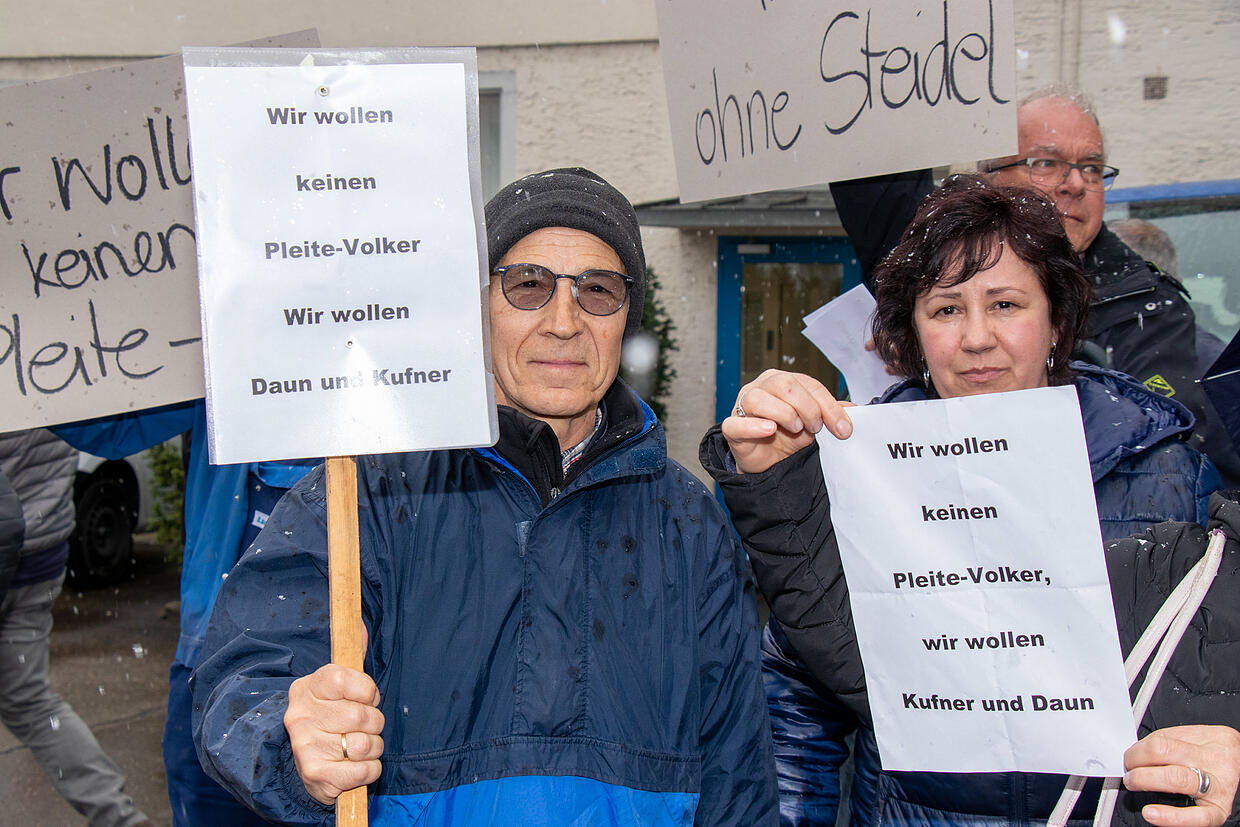 wollen
keinen
Pleite-
Wir wollen
keinen
Pleite-Volker
Wir wollen
Daun und Kufner
ohne Steidel
Wir wollen
keinen
Pleite-Volker,
wir wollen
Kufner und Daun